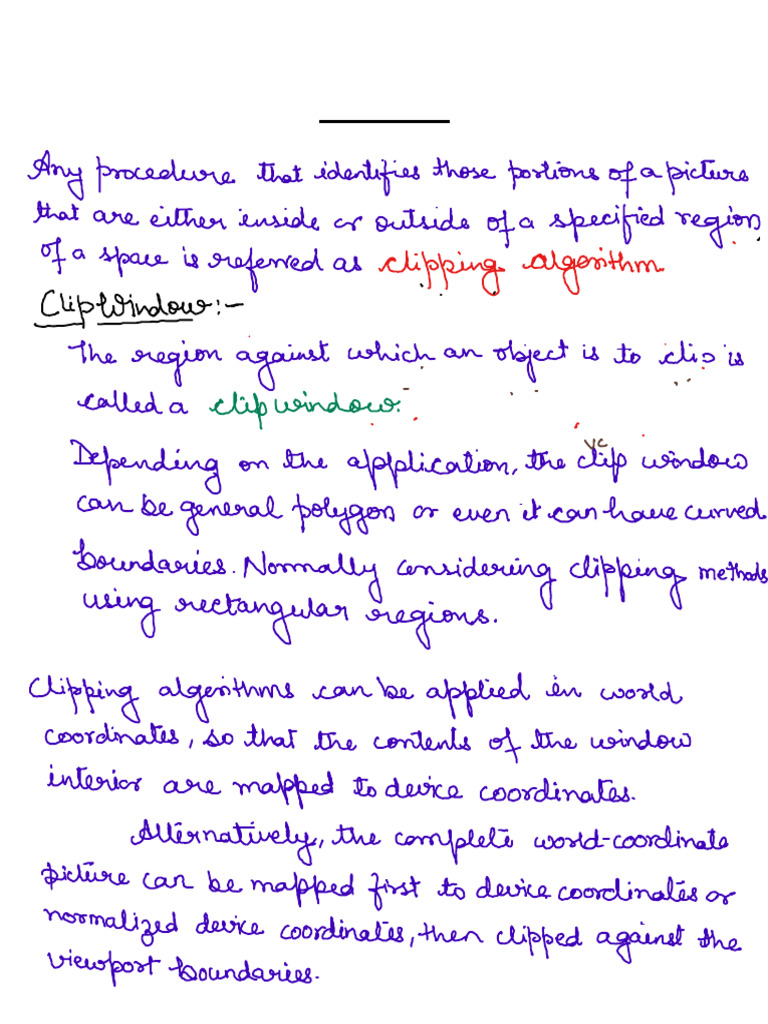 Any procedure that identifies those portions of a picture
that are either inside or outside of a specified region
of a space is referred as clipping algorithm.
Clip Window:-
The region against which an object is to clip is
called a clip window.
Depending on the application, the clip window
can be general polygon or even it can have curved
boundaries. Normally considering clipping methods
using rectangular regions.
Clipping algorithms can be applied in world
coordinates, so that the contents of the window
interior are mapped to device coordinates.
Alternatively, the complete world-coordinate
picture can be mapped first to device coordinates or
normalized device coordinates, then clipped against the
viewport boundaries.